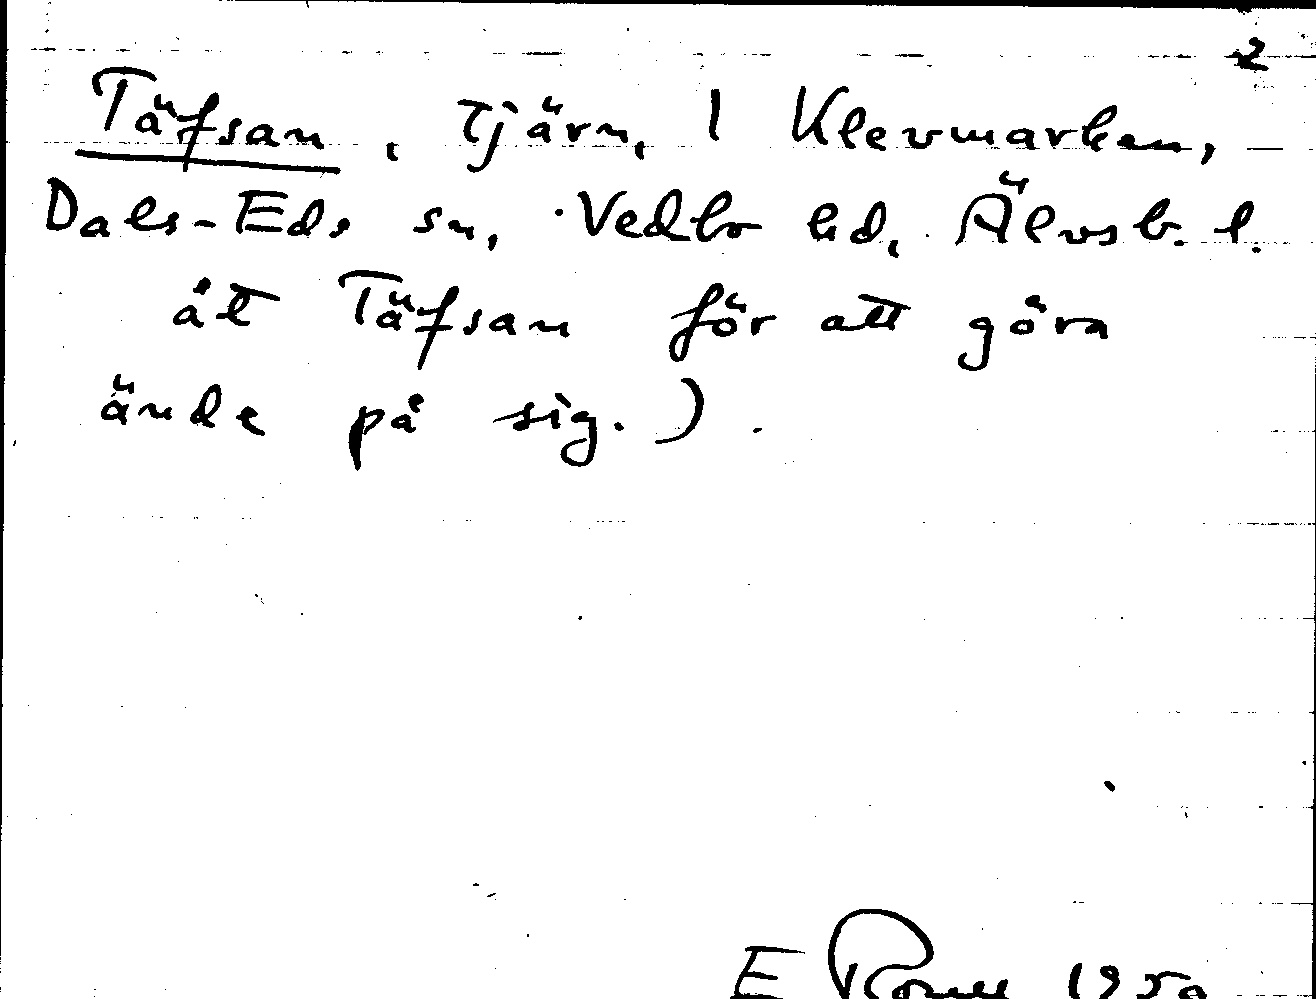 2
Täfsan, tjärn, 1 Klevmarken,
Dals-Eds sn, Vedbo hd, Älvsb. l.
åt Täfsan för att göra
ände på sig.)
E 1950